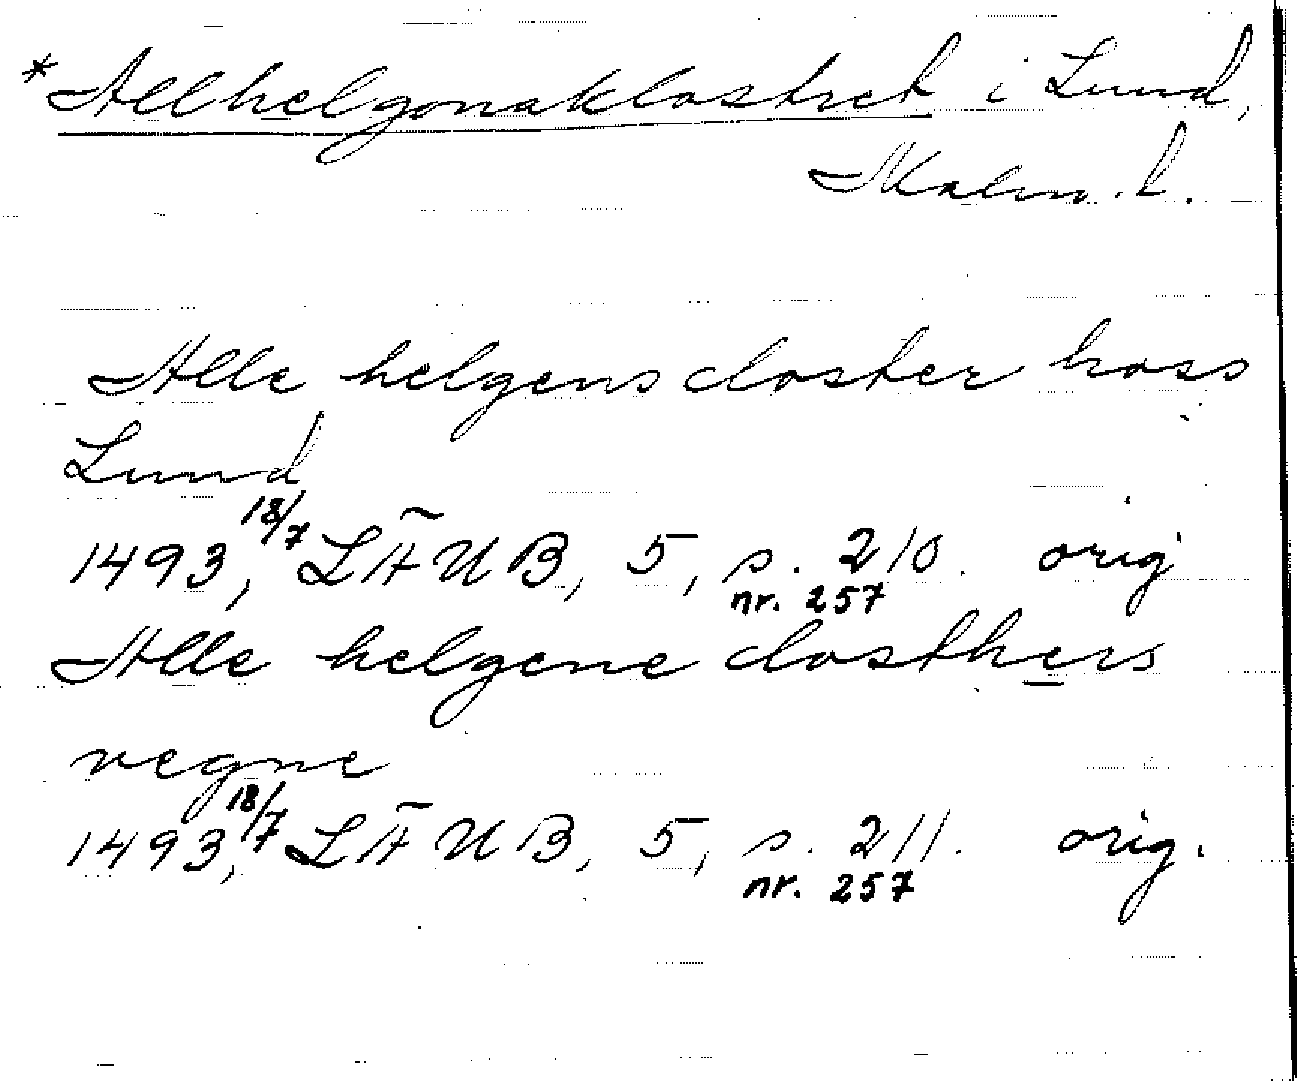 *Allhelgonaklostret i Lund,
Malm. l.
Alle helgens closter hoss
Lund
1493, 18/7 LÄUB, 5, s. 210. orig
nr. 257
Alle helgene closthers
vegne
1493, 18/7 LÄUB, 5, s. 211. orig.
nr. 257